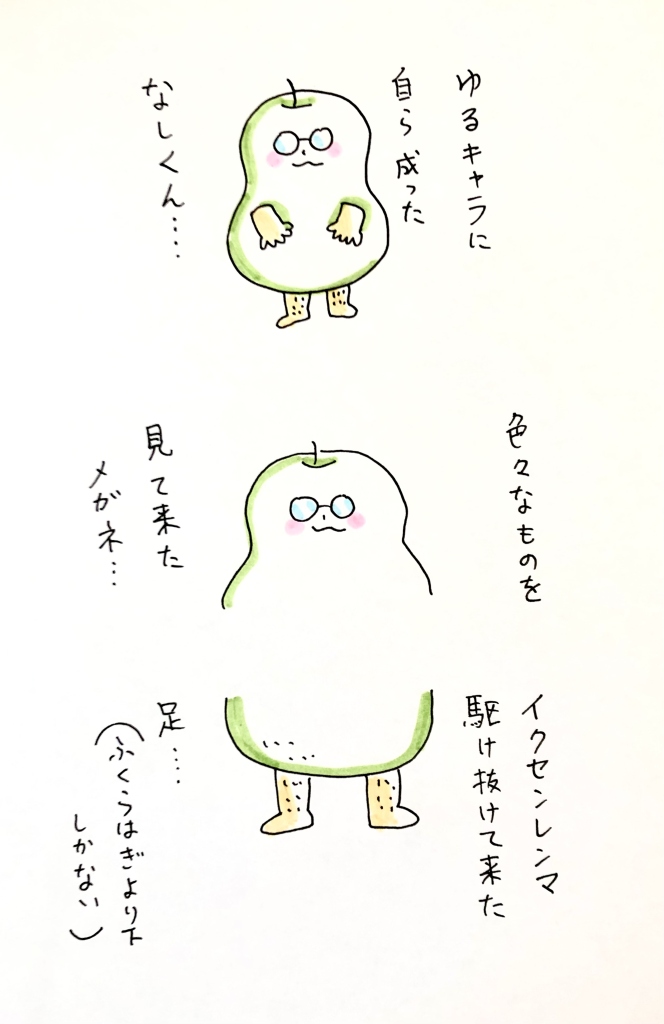 ゆるキャラに
自ら成った
なしくん‥‥
色々なものを
見て来た
メガネ…
イクセンレンマ
駆け抜けて来た
足‥‥
(ふくらはぎより下
しかない)